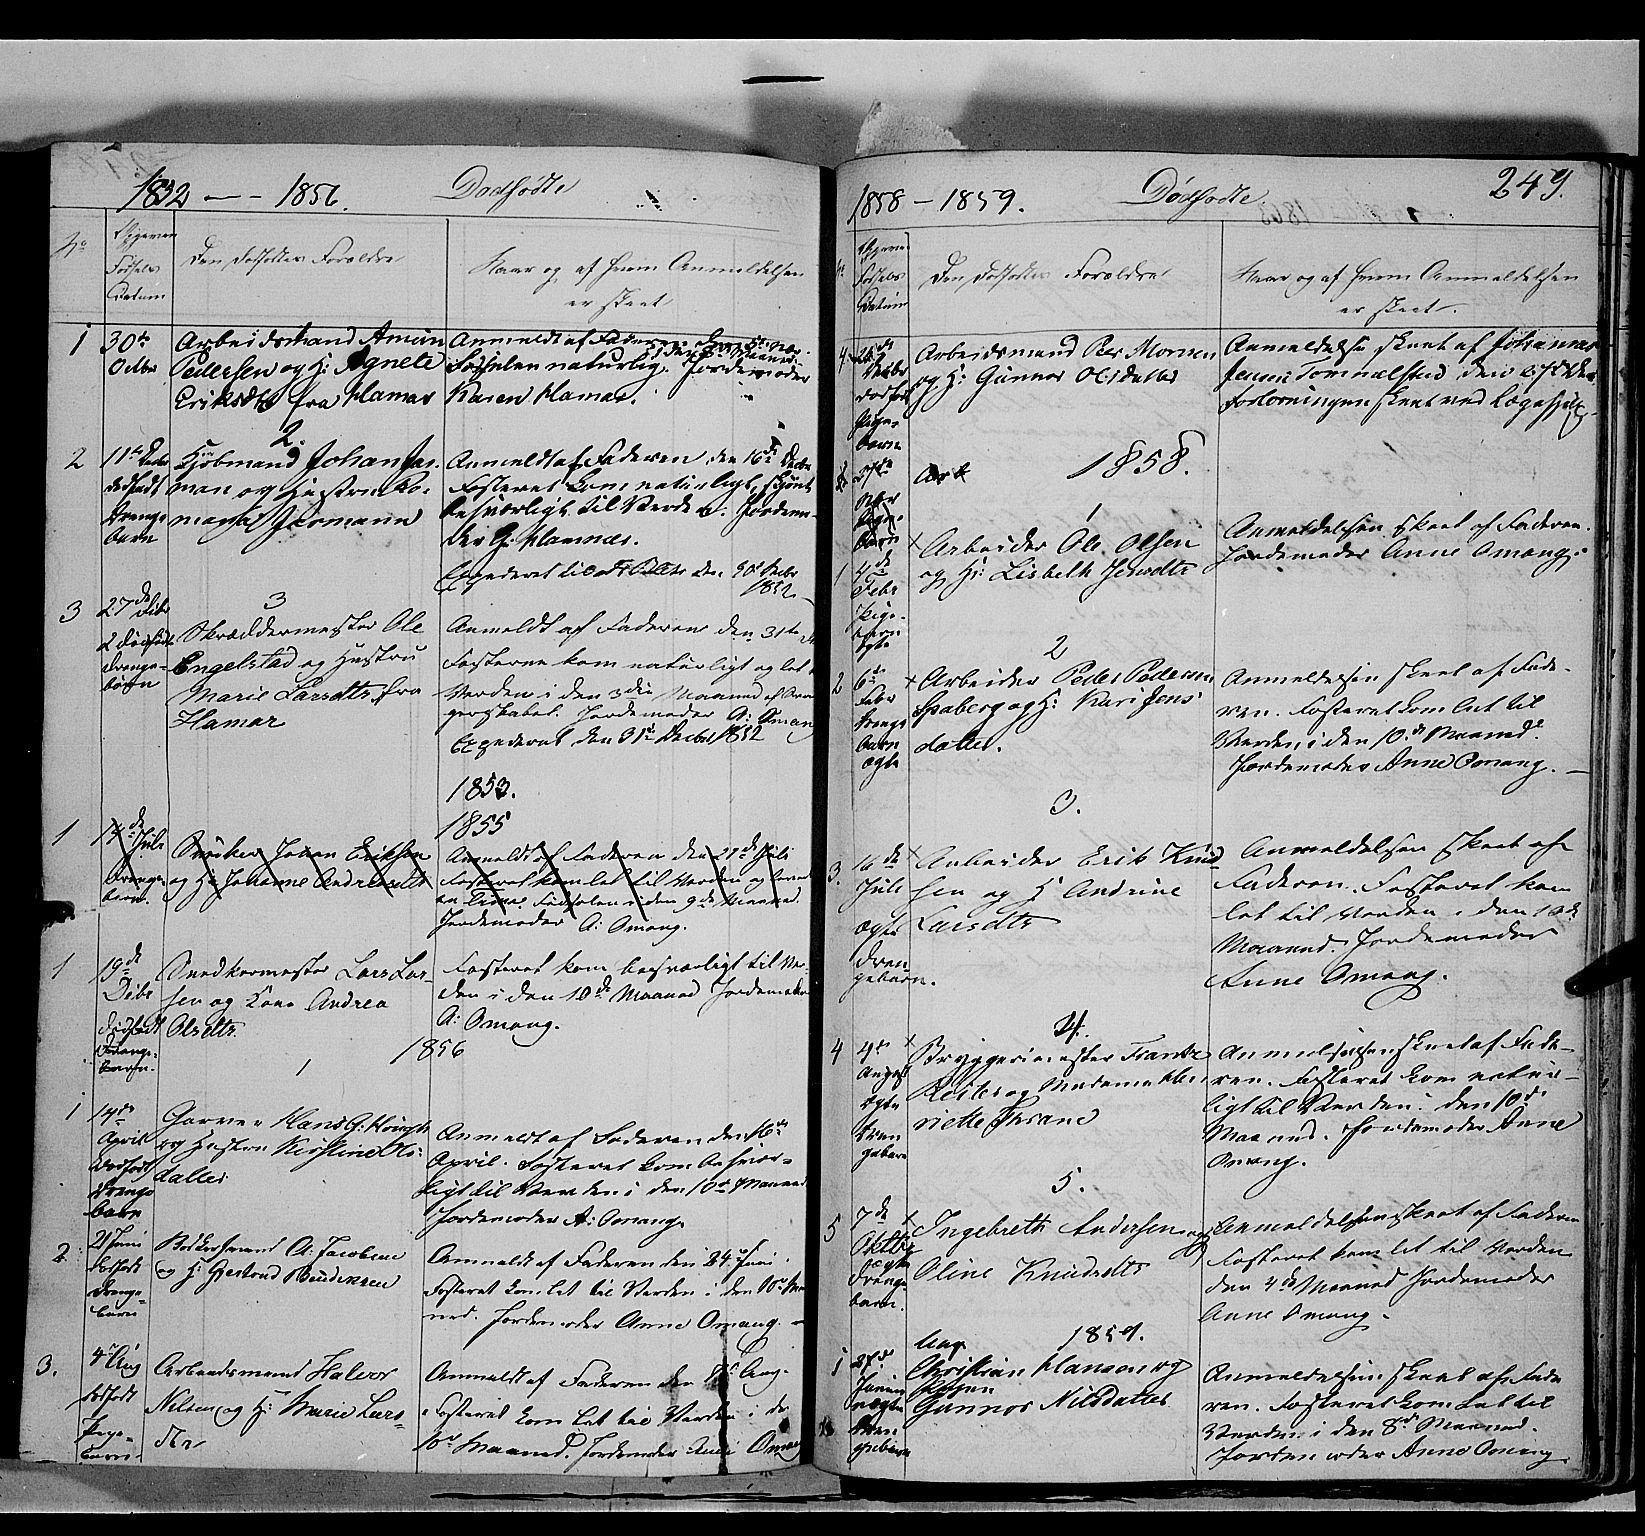 1852 — 1856. Dødfødte
No
Opgiven
Fødsels
Datum
Den Dødfødtes Forældre
Naar og af hvem Anmeldelsen
er skeet
1
30te
Octbr
Arbeidsmand
Pedersen og H: Agnete
Eriksdtr fra Hamar
Anmeldt af Faderen
Fødselen naturlig. Jordemoder
Karen Hamar.
2.
2
11te Decbr
dødfødt
Drenge
barn
Kjøbmand Johan Jas.
man og Hustru
Anmeldt af Faderen den 16de Decbr
Fosteret kom naturligt, skjønt
besværligt til Verden. Jordemo-
der G. Hamnæs.
Expederet til den 30te Decbr
1852
3
3
27de Dcbr
2 dødfødte
Drenge-
børn
Skræddermester Ole
Engelstad og Hustru
Marie Larsdtr fra
Hamar
Anmeldt af Faderen den 31te
Fosterne kom naturligt og let
Verden i den 3die Maaned af Svan
gerskabet. Jordemoder A: Omang
Expederet den 31te Decbr 1852
1853.
1855
1
Juli
Drenge-
barn.
Snidker Johan Erikson
og H: Johanne Andreasdtr
Anmeldt af Faderen den 21de Juli
Fosteret kom let til Verden og
Fødselen i den 9de Maaned.
Jordemoder A: Omang.
1
19de
Dcbr
dødfødt
Drenge-
barn.
Snedkermester Lars Lar-
sen og Kone Andrea
Olsdtr.
Fosteret kom besværligt til Ver-
den i den 10de Maaned Jordemoder
A: Omang.
1856
1
1
14de
April
dødfødt
Drenge
barn
Garver Hans G:
og Hustru Kirstine Ols-
datter
Anmeldt af Faderen den 16de
April. Fosteret kom besvær-
ligt til Verden i den 10de Maaned
Jordemoder A: Omang
2
21 Juni
dødfødt
Drenge-
barn
A: Jacobsen
og H:
Anmeldt af Faderen den 24de Juni.
Fosteret kom let til Verden i den 10de Maa
ned. Jordemoder Anne Omang. —
3.
4de Aug
dødfødt
Pige-
barn.
Arbeidsmand Halvor
Nilsen og H: Marie Lars-
dtr
Anmeldt af Faderen den Aug.
Fosteret kom let til Verden i den
10de Maaned. Jordemoder Anne Omang
1858 – 1859. Dødfødte 249.
Opgivne
Fødsels
Datum
Den Dødfødtes Forældre
Naar og af hvem Anmeldelsen
er skeet.
4
Decbr
dødfødt
Pige-
barn
Arbeidsmand Peer Monsen
og H: Gunnor Olsdatter
Anmeldelsen skeet af Johannes
Jensen Tommelstad den
Forløsningen skeet ved Lægehjelp
27de
barn
1858.
1
1
4de
Febr
Pige-
barn
ægte
Arbeider Ole Olsen
og H: Lisbeth Jensdtr
Anmeldelsen skeet af Faderen.
Jordemoder Anne Omang.
2
2
6te
Febr
Drenge
barn
ægte
Arbeider Peder Pedersen
Spaberg og H: Kari Jens
datter.
Anmeldelsen skeet af Fade-
ren. Fosteret kom let til
Verden i den 10de Maaned.
Jordemoder Anne Omang. —
3.
3.
16de
Juli
ægte
Dren-
gebarn.
Arbeider Erik Knud
sen og H Andrine
Larsdtr
Anmeldelsen skeet af
Faderen. Fosteret kom
let til Verden i den 10de
Maaned. Jordemoder
Anne Omang.
4.
4
4de
August
ægte
Dren
gebarn
Bryggerimester Frantz
Reiter og Madame Hen
riette Thrane
Anmeldelsen skeet af Fade-
ren. Fosteret kom natur-
ligt til Verden i den 10de
Maaned. Jordemoder Anne
Omang.
5.
5
7de
Oktbr
ægte
Drenge-
barn.
Ingebreth Andersen og
Oline Knudsdtr
Anmeldelsen skeet af Faderen
Fosteret kom let til Verden
den 4de Maaned Jordemoder
Anne Omang.
1859.
1
27de
Januar
uægte
Dren
gebarn
Ung.
Christian Hansen og
Pigen
Gunnor Nilsdatter
Anmeldelsen skeet af Fade
ren. Fosteret kom let til
Verden i den 8de Maaned.
Jordemoder Anne Omang